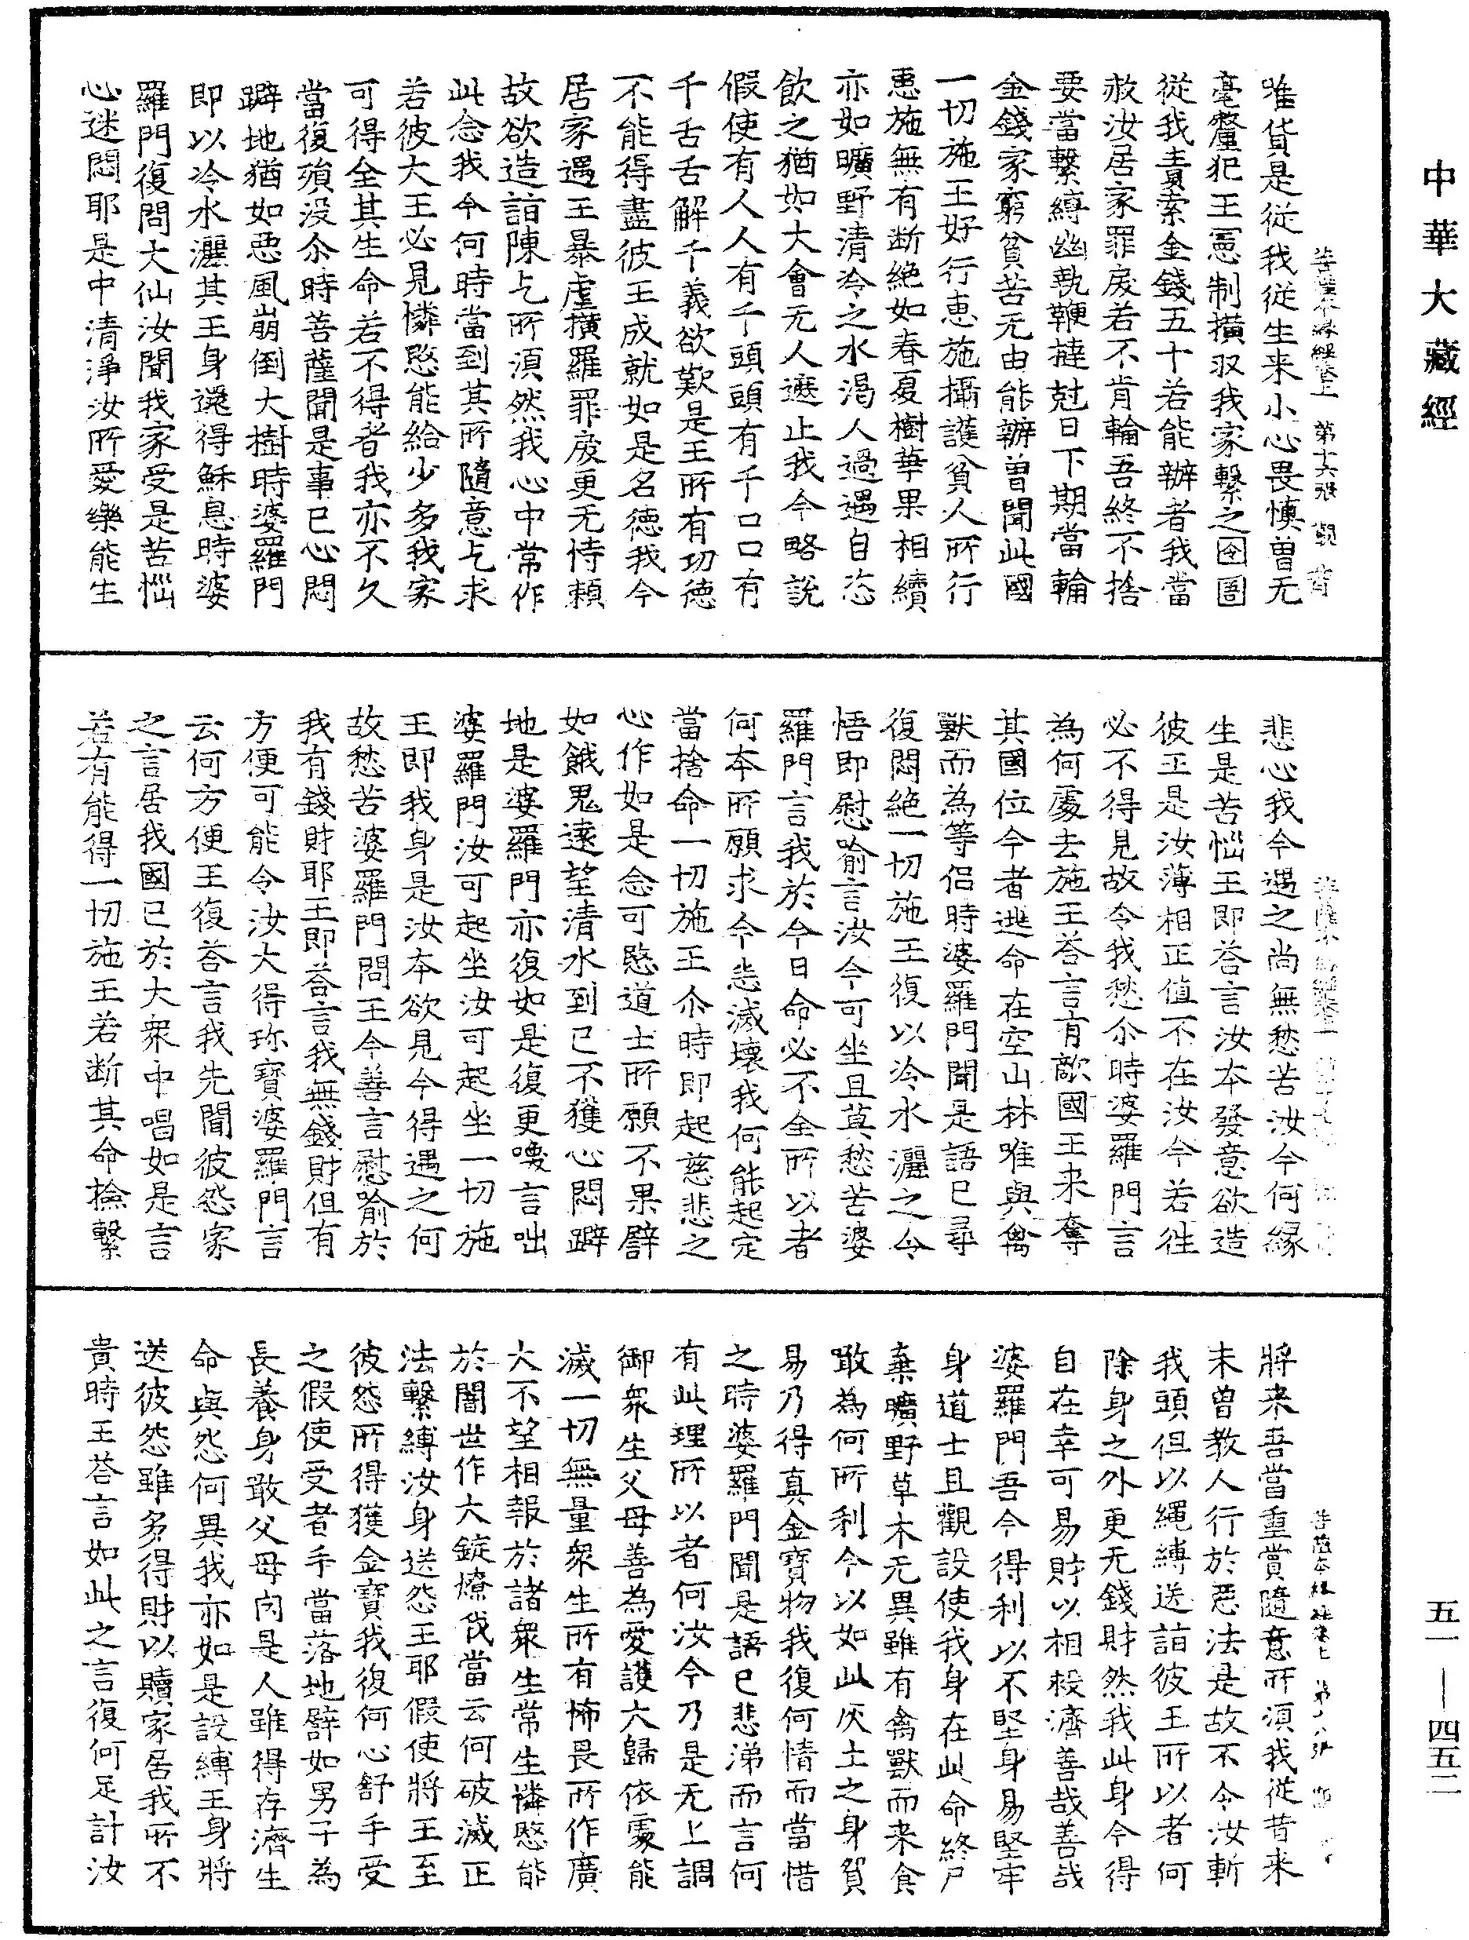 中華大藏經
唯貨是從我從生来小心畏慎曽无
毫釐犯王憲制橫収我家繫之囹圄
從我責索金錢五十若能辦者我當
赦汝居家罪戾若不肯輪吾終不捨
要當繫縛幽執鞭撻尅日下期當輪
金錢家窮貧苦无由能辦曽聞此國
一切施王好行恵施攝護貧人所行
恵施無有断絶如春夏樹華果相續
亦如曠野清冷之水渇人過遇自恣
飲之猶如大會无人遮止我今略說
假使有人人有千頭頭有千口口有
千舌舌解千義欲歎是王所有功徳
不能得盡彼王成就如是名徳我今
居家遇王暴虐擴羅罪戾更无恃頼
故欲造詣陳乞所湏然我心中常作
此念我今何時當到其所隨意乞求
若彼大王必見憐愍能給少多我家
可得全其生命若不得者我亦不久
當復殞没尒時菩薩聞是事已心悶
躃地猶如惡風崩倒大樹時婆羅門
即以冷水灑其王身還得穌息時婆
羅門復問大仙汝聞我家受是苦惱
心迷悶耶是中清淨汝所愛樂能生
悲心我今遇之尚無愁苦汝今何縁
生是苦惱王即荅言汝夲發意欲造
彼王是汝薄相正值不在汝今若往
必不得見故令我愁尒時婆羅門言
為何處去施王荅言有敵國王来奪
其國位今者逃命在空山林唯與禽
獸而為等侣時婆羅門聞是語已尋
復悶絶一切施王復以冷水灑之令
悟即慰喻言汝今可坐且莫愁苦婆
羅門言我於今日命必不全所以者
何夲所願求今悉滅壞我何能起定
當捨命一切施王尒時即起慈悲之
心作如是念可愍道士所願不果譬
如餓鬼遠望清水到已不獲心悶躃
地是婆羅門亦復如是復更喚言咄
婆羅門汝可起坐汝可起坐一切施
王即我身是汝夲欲見今得遇之何
故愁苦婆羅門問王今善言慰喻於
我有錢財耶王即荅言我無錢財但有
方便可能令汝大得珎寶婆羅門言
云何方便王復荅言我先聞彼怨家
之言居我國已於大衆中唱如是言
若有能得一切施王若断其命撿繫
將来吾當重賞隨意所湏我從昔来
未曽教人行於惡法是故不令汝斬
我頭但以縄縛送詣彼王所以者何
除身之外更无錢財然我此身今得
自在幸可易財以相救濟善哉善哉
婆羅門吾今得利以不堅身易堅牢
身道士且觀設使我身在此命終尸
棄曠野草木无異雖有禽獸而来食
噉為何所利今以如此灰土之身貿
易乃得真金寶物我復何情而當惜
之時婆羅門聞是語已悲涕而言何
有此理所以者何汝今乃是无上調
御衆生父母善為愛護大歸依處能
滅一切無量衆生所有怖畏所作廣
大不望相報於諸衆生常生憐愍能
於闇世作大錠燎我當云何破滅正
法繫縛汝身送怨王耶假使將王至
彼怨所得獲金寶我復何心舒手受
之假使受者手當落地譬如男子為
長養身敢父母肉是人雖得存濟生
命與怨何異我亦如是設縛王身將
送彼怨雖多得財以贖家居我所不
貴時王荅言如此之言復何足計汝
五一—四五二